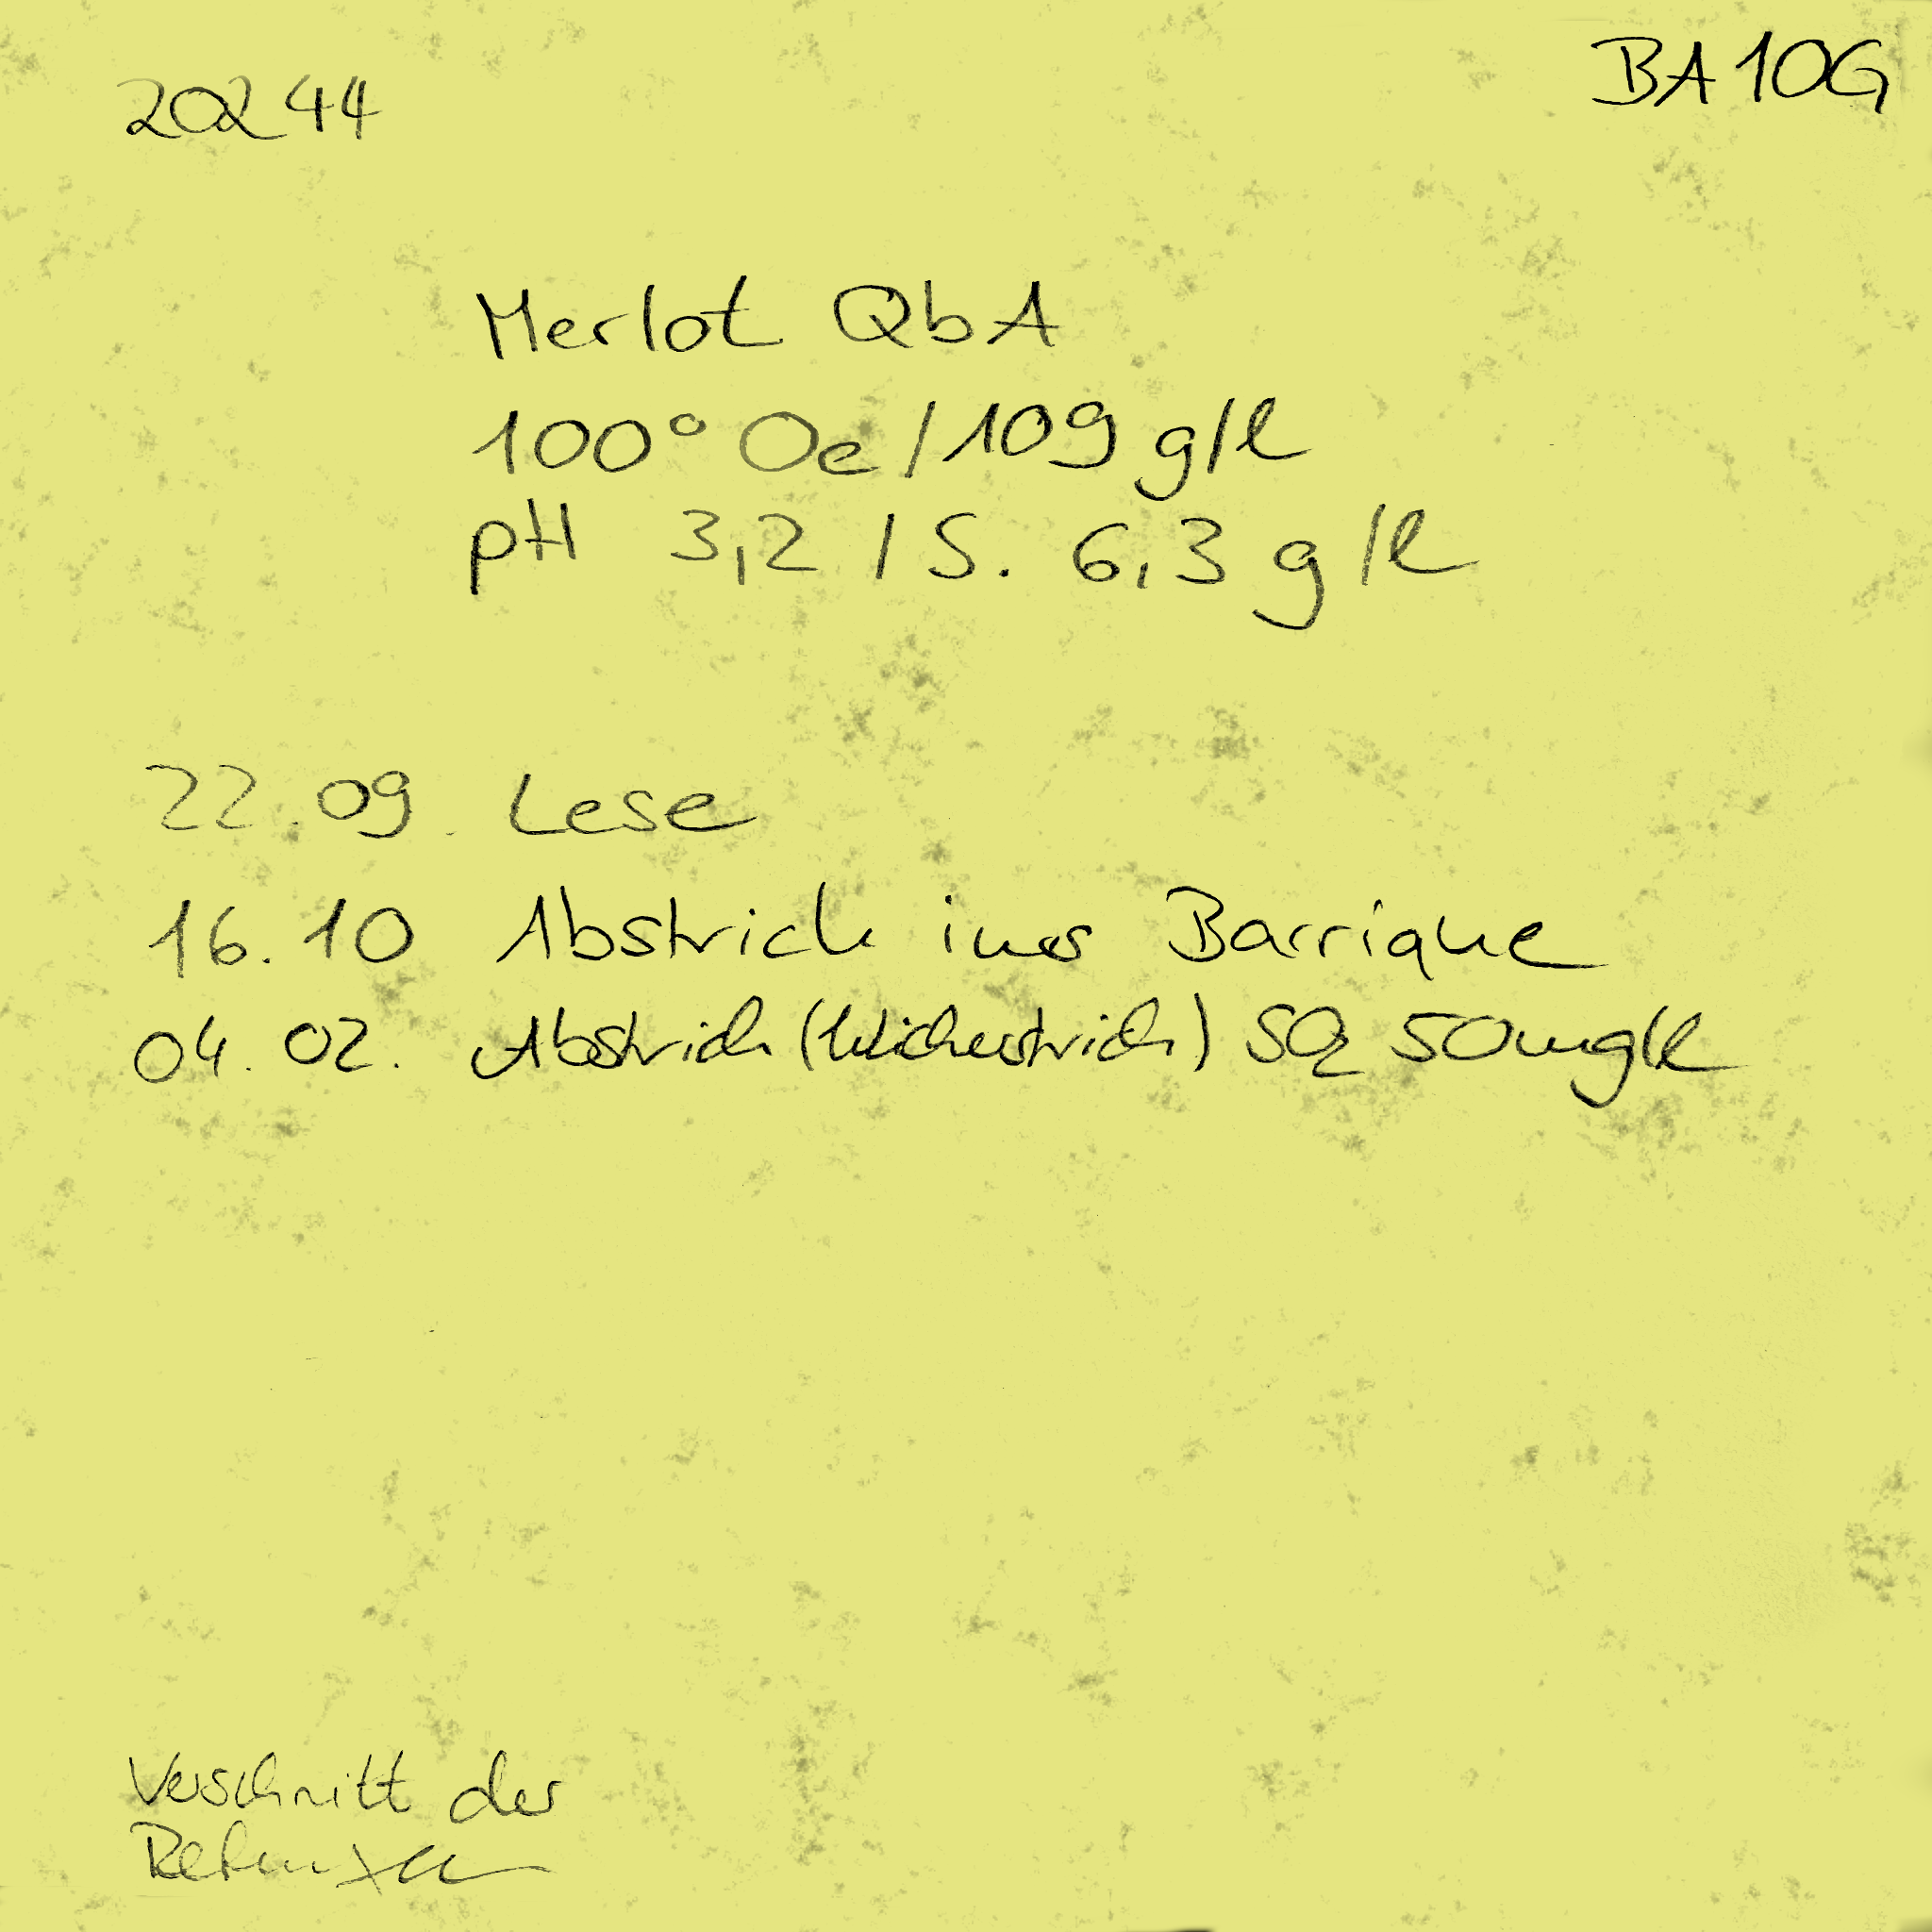 20244
BA 10G
Merlot QbA
100° Oe / 109 g/l
pH 3,2 / S. 6,3 g/l
22.09. Lese
16.10 Abstrich ins Barrique
04.02. Abstrich SO2 50mg/l
Verschnitt der